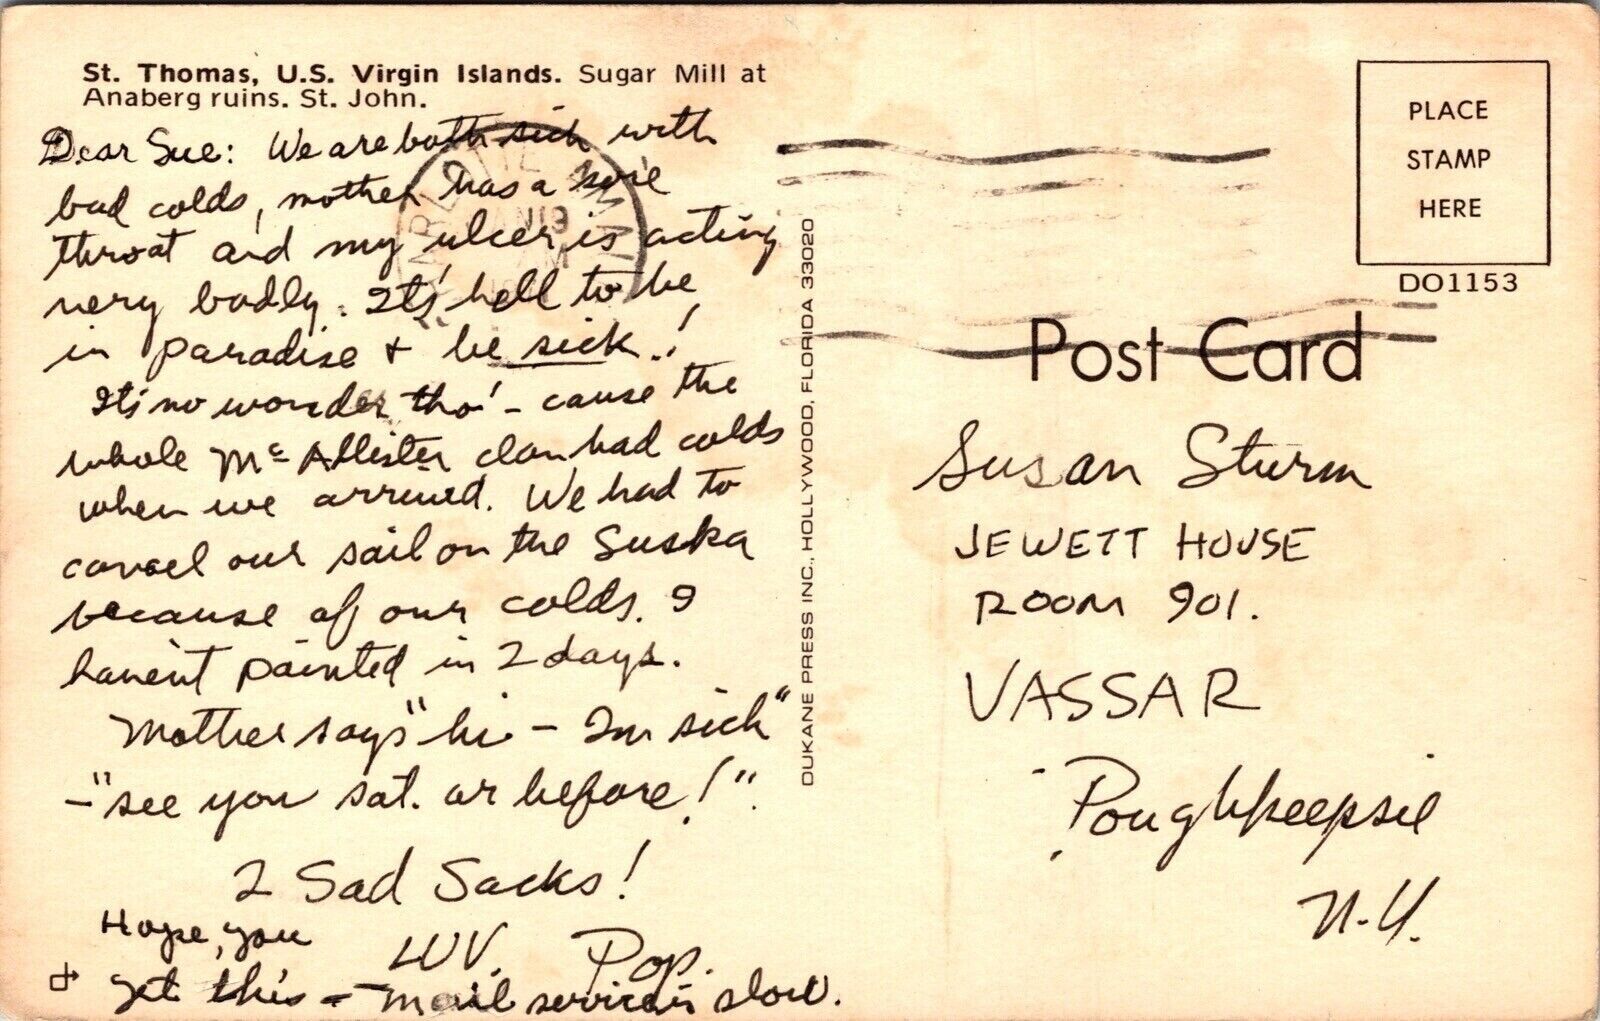 St. Thomas, U.S. Virgin Islands. Sugar Mill at
Anaberg ruins. St. John.
Dear Sue: We are both sick with
bad colds, mother has a sore
throat and my ulcer is acting
very badly. It's hell to be
in paradise + be sick.!
It's no wonder tho' - cause the
whole McAllister clan had colds
when we arrived. We had to
cancel our sail on the Suska
because of our colds. I
haven't painted in 2 days.
Mother says "hi - I'm sick"
- "see you sat. or before!".
2 Sad Sacks!
LUV. Pop.
Hope, you
get this - mail service is slow.
DUKANE PRESS INC., HOLLYWOOD, FLORIDA 33020
PLACE
STAMP
HERE
DO1153
Post Card
Susan Sturm
JEWETT HOUSE
ROOM 901.
VASSAR
Poughkeepsie
N.Y.